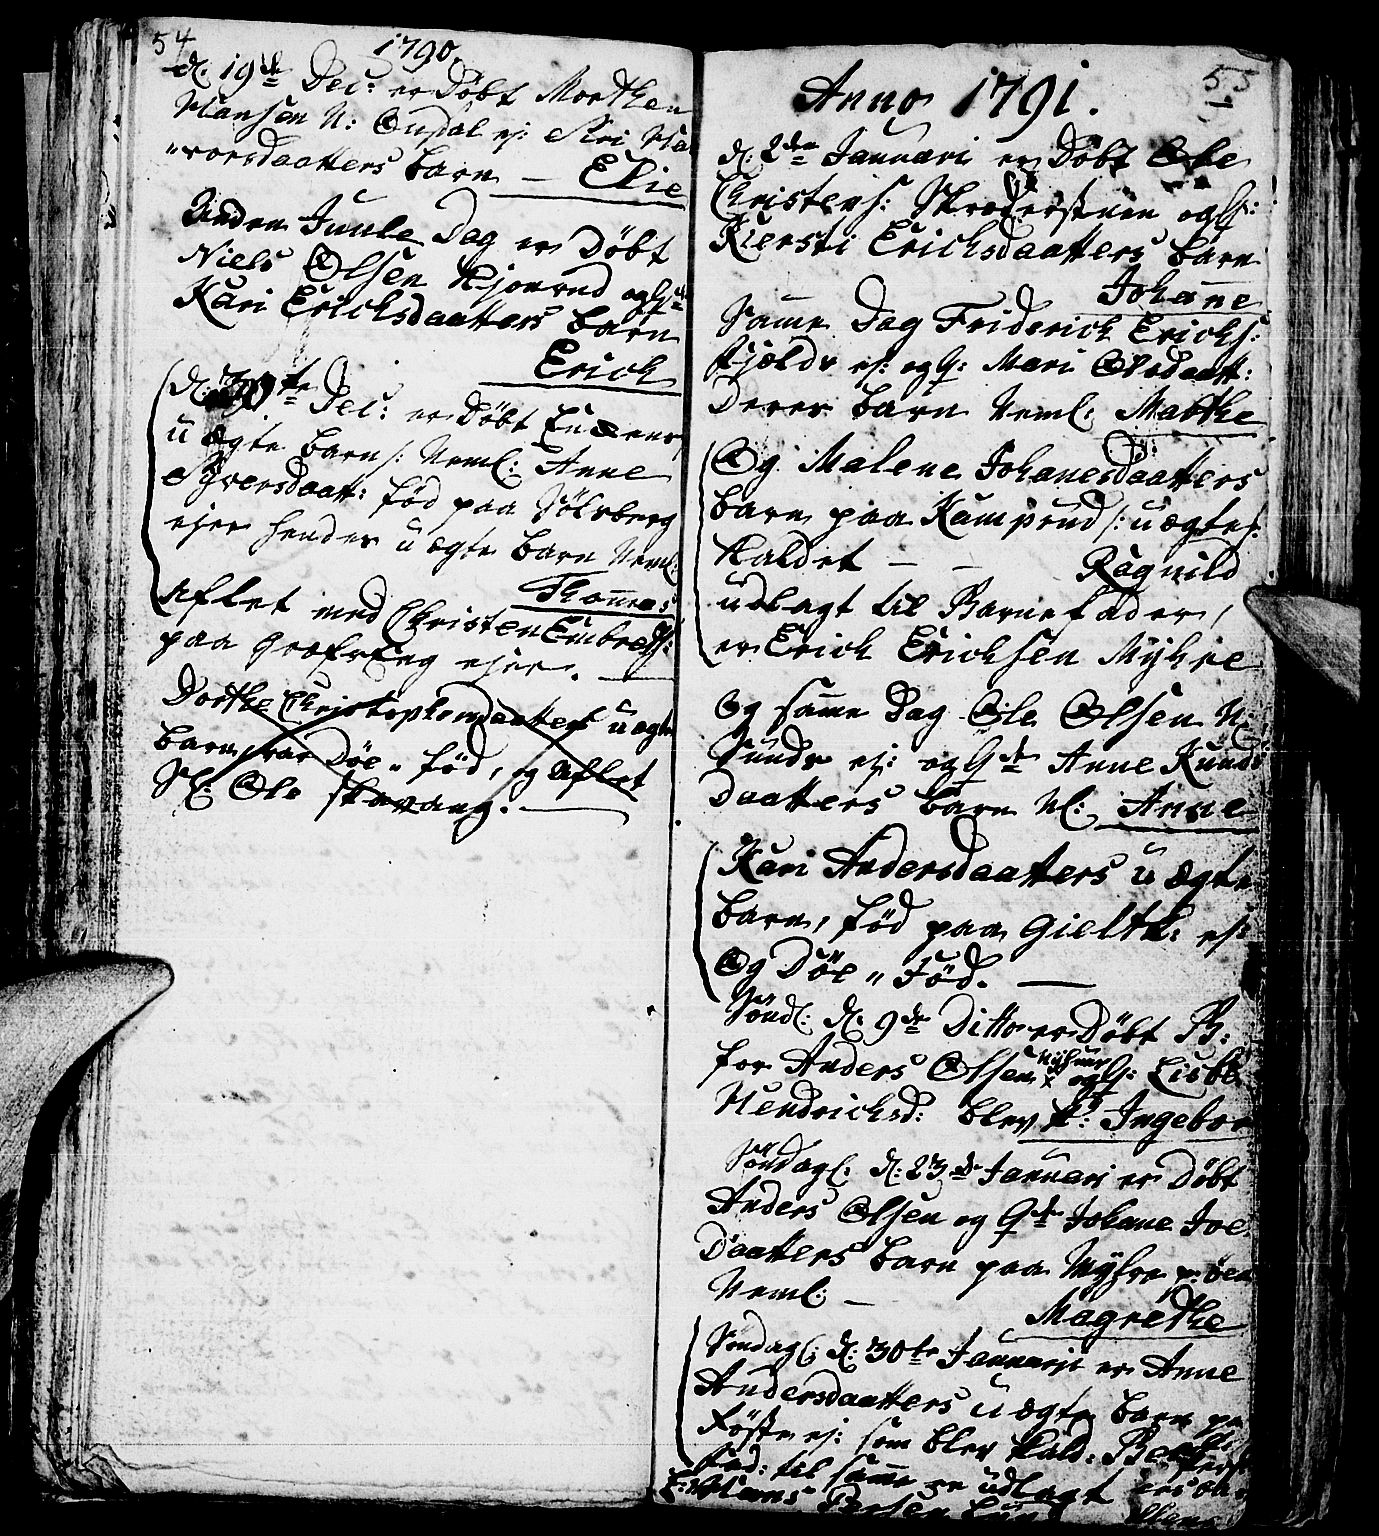 54
1790.
d. 19de Dec: er Døbt Morthen
Hansen N: ej: Siri Ha
"vorsdaatters barn — Elie
Anden Juule Dag er Døbt
Niels Olsen Hjonrud og Hst
Kari Erichsdaatters barn
Erich
d: 30te Dec: er Døbt
uægte barn /: Neml: Anne
Syversdaatt: Fød paa Sølvberg
ejer hendes uægte barn Neml:
Thom̄es
Aflet med Christen Embretß:
paa ejer.
Dorthe Christophersdaatters uægte
barn, var Død" fød, og Aflet
Sl: Ole Stavang.
55
Anno 1791.
d: 2den Januari er Døbt Ole
Christens: og Hs:
Kiersti Erichsdaatters barn
Johan̄e
Sam̄e Dag Friderich Erichs:
Fjælde ej: og H: Mari Olsdaatt:
Deres barn Neml: Marthe
Og Malene Johanesdaatters
barn paa Kamprud /: uægte /:
Kaldet — — Ragnild
udlagt til Barnefader,
er Erich Erichsen Myhre
Og sam̄e Dag Ole Olsen N:
Sunde ej: og Hst Anne Knuds
daatters barn Nl: Anne
Kari Andersdaatters uægte
barn, fød paa Gielth: ej:
Og Død" Fød. —
Søndl: d: 9de Ditto er Døbt B:
for Anders Olsen Nÿhuus og H: Lisbe
Hendrichsd: blev k: Ingebor
Søndagl: d: 23de Januari er Døbt
Anders Olsen og Hst Johane Joe
Daatters barn paa Myhre p: øen
Neml: — Magrethe
Søndagl: d: 30te Januarii er Anne
Andersdaatters uægte barn pa
Føste ej: som blev kald: Be
Fad: til sam̄e er udlagt
Hans Persen Lund